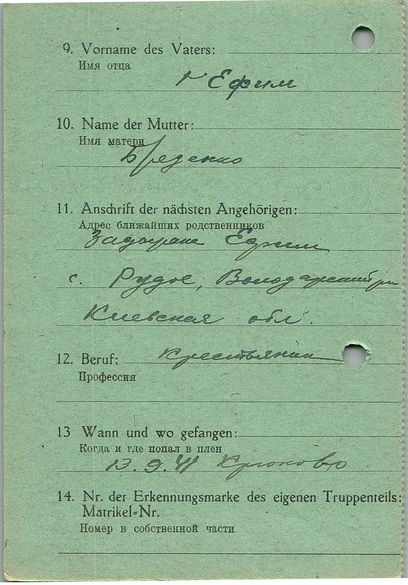 9. Vorname des Vaters:
Имя отца
Ефим
10. Name der Mutter:
Имя матери
11. Anschrift der nächsten Angehörigen:
Адрес ближайших родственников
Ефим
с. Рудое, Володарский р
Киевская обл.
12. Beruf: крестьянин
Профессия
13 Wann und wo gefangen:
Когда и где попал в плен
13.9.41 Крюково
14. Nr. der Erkennungsmarke des eigenen Truppenteils:
Matrikel-Nr.
Номер в собственной части